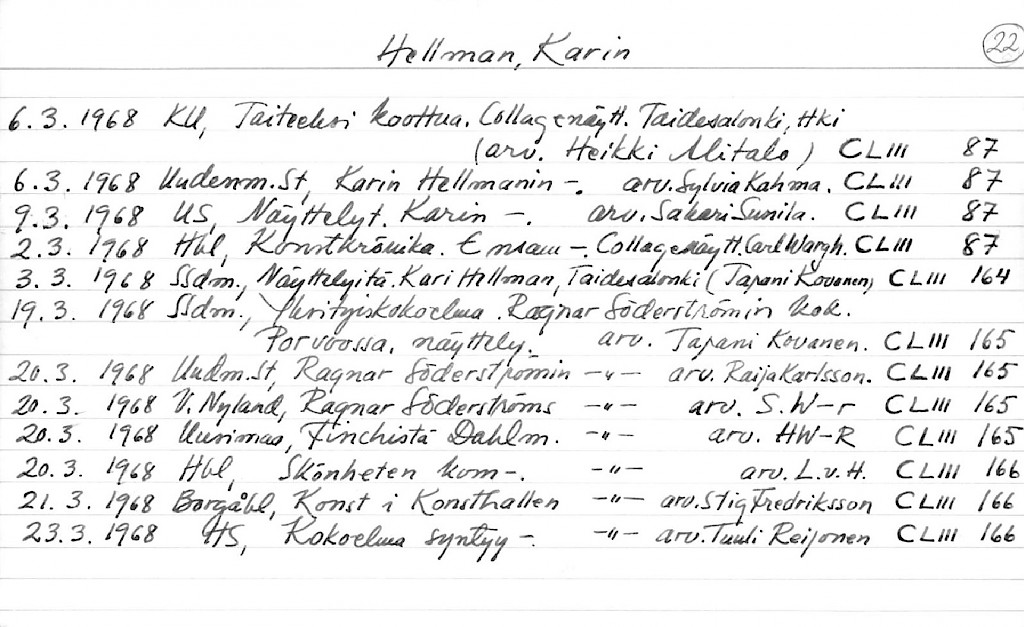 Hellman, Karin 22
6.3. 1968 KU, Taiteeksi koottua. Collagenäytt. Taidesalonki, Hki
(arv. Heikki Alitalo) CLIII 87
6.3. 1968 Uudenm.St, Karin Hellmanin -. arv. Sylvia Kahma. CLIII 87
9.3. 1968 US, Näyttelyt. Karin -. arv. Sakari Sunila. CLIII 87
2.3. 1968 Hbl, Konstkrönika. Ensam - Collagenäytt. Carl Wargh. CLIII 87
3.3. 1968 Ssdm., Näyttelyitä. Kari Hellman, Taidesalonki (Tapani Kovanen) CLIII 164
19.3. 1968 Ssdm., Yksityiskokoelma. Ragnar Söderströmin kok.
Porvoossa, näyttely. arv. Tapani Kovanen. CLIII 165
20.3. 1968 Uudm.St, Ragnar Söderströmin -"- arv. Raija Karlsson. CLIII 165
20.3. 1968 V. Nyland, Ragnar Söderströms -"- arv. S. W-r CLIII 165
20.3. 1968 Uusimaa, Finchistä Dahlm. -"- arv. HW-R CLIII 165
20.3. 1968 Hbl, Skönheten kom-. -"- arv. L.v.H. CLIII 166
21.3. 1968 Borgåbl, Konst i Konsthallen -"- arv. Stig Fredriksson CLIII 166
23.3. 1968 HS, Kokoelma syntyy -. -"- arv. Tuuli Reijonen CLIII 166